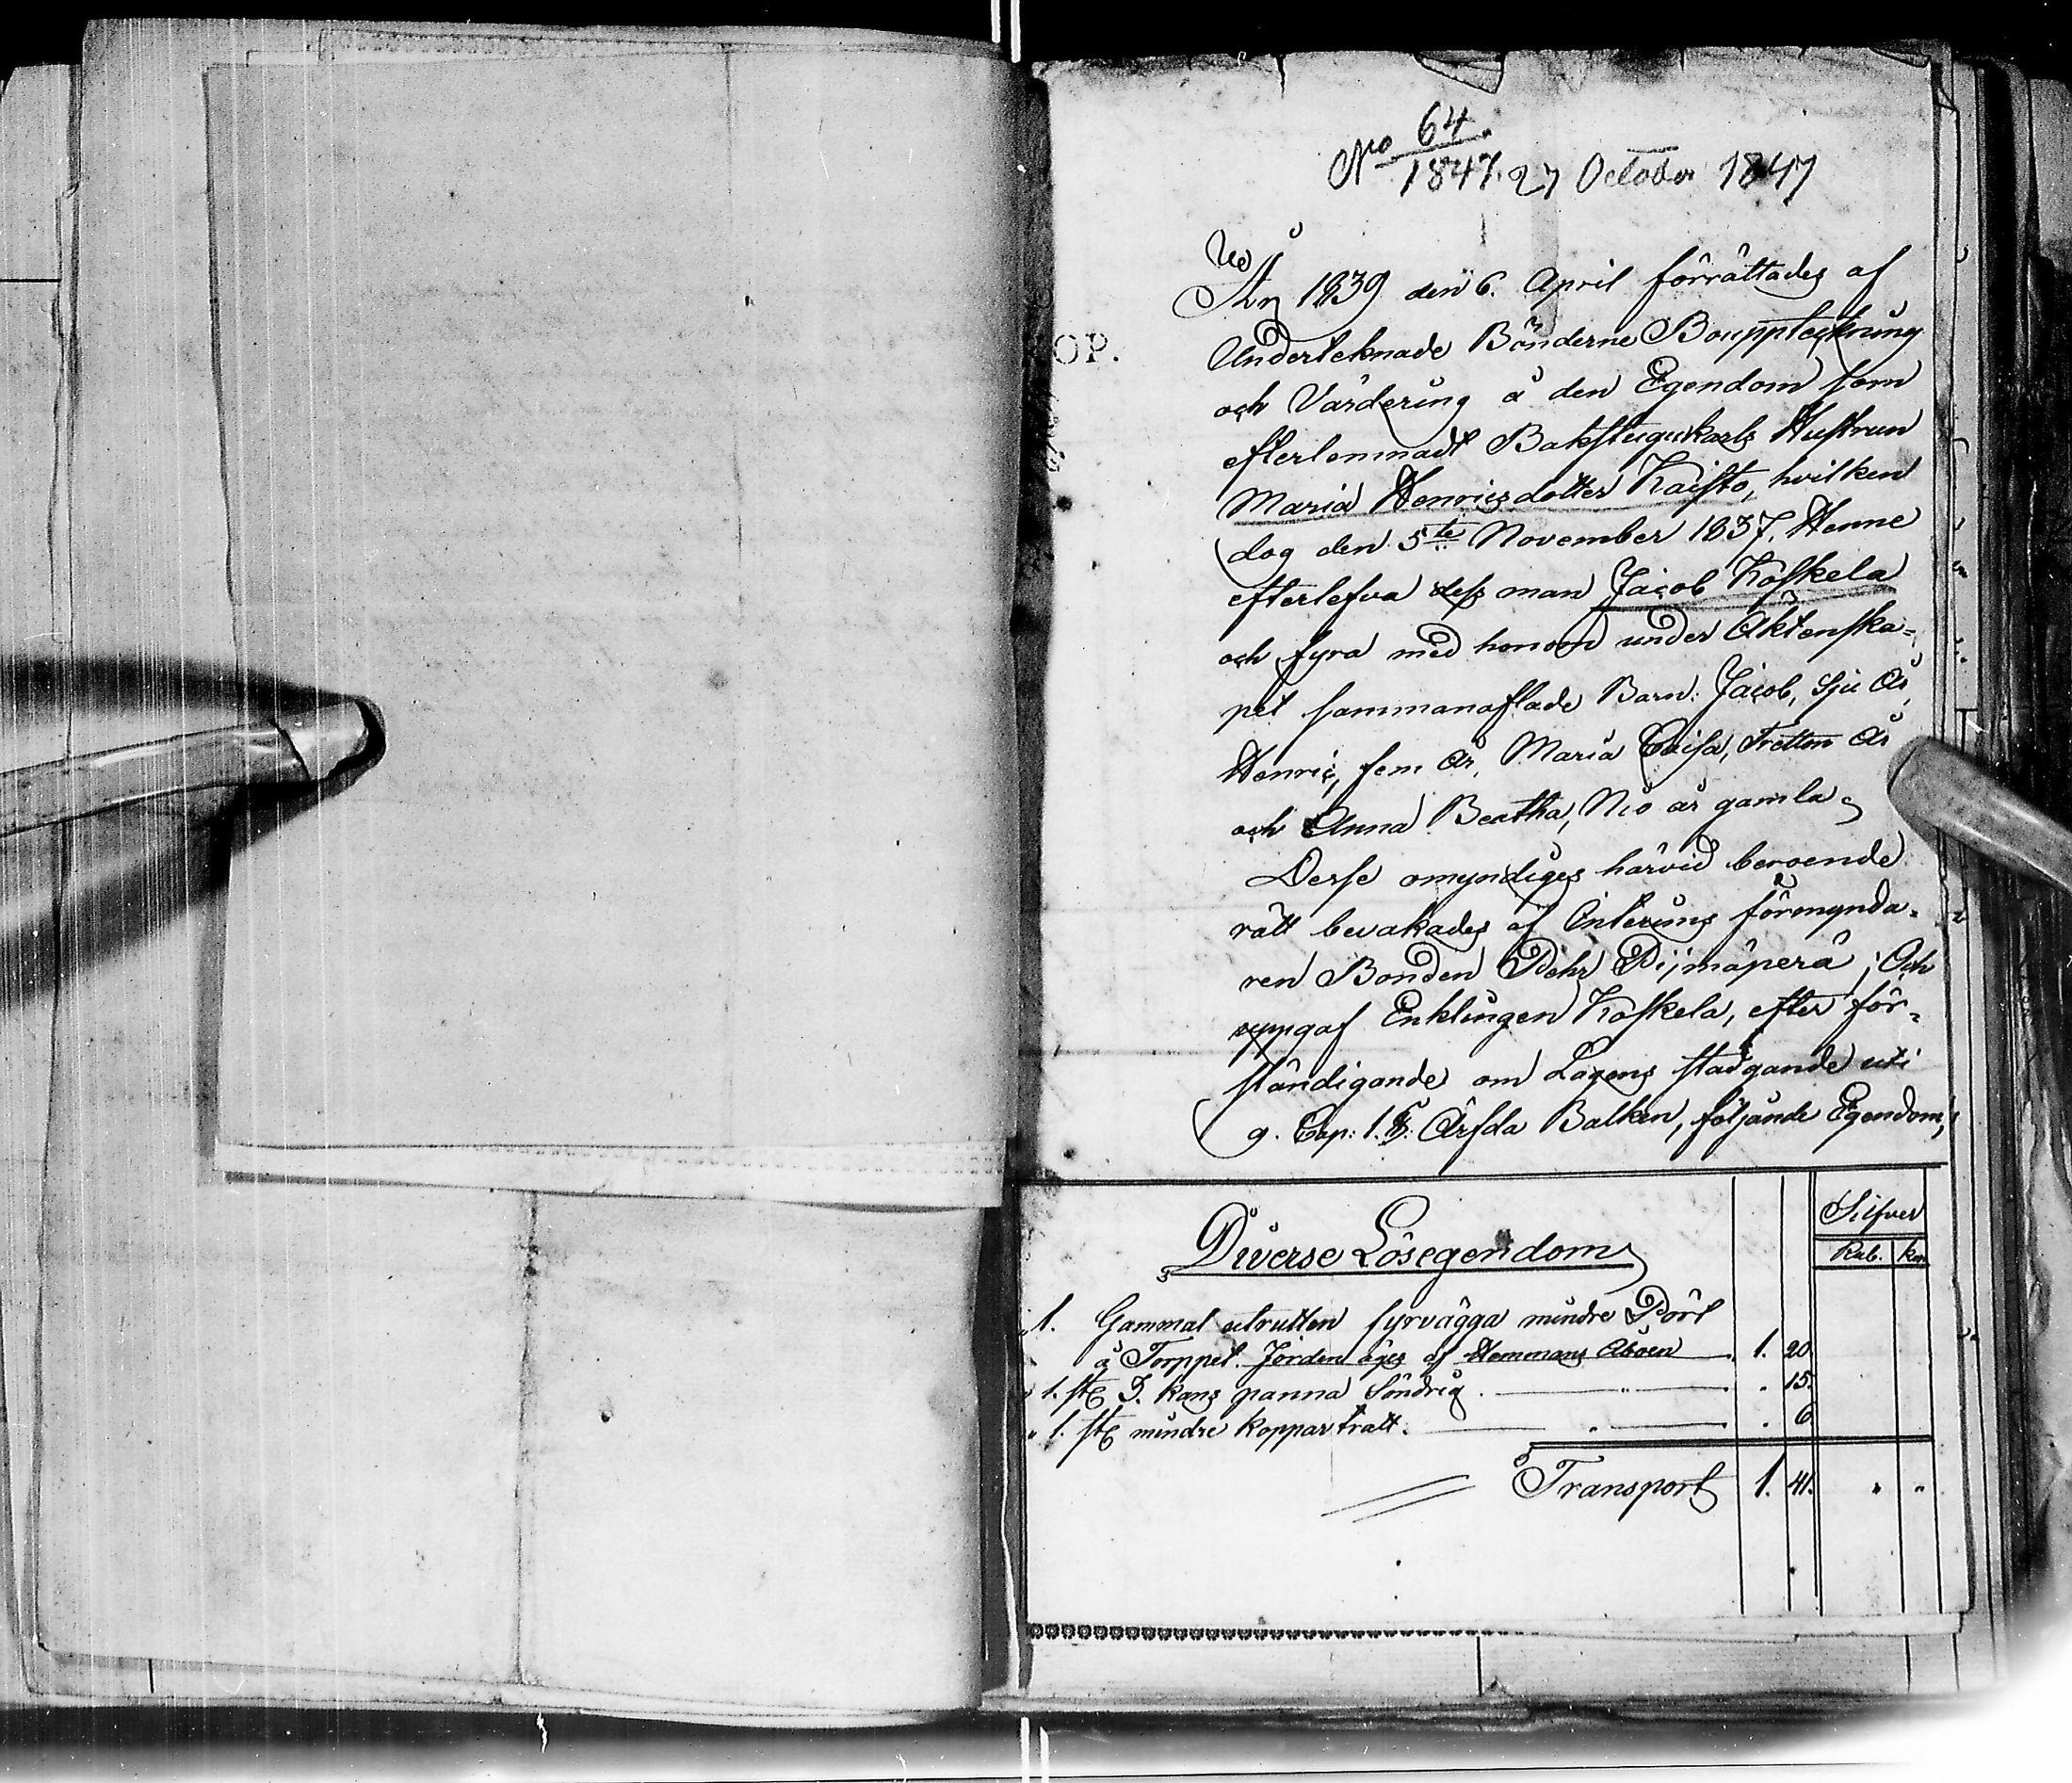 No 64/1847. 27 October 1847
År 1839 den 6. April förrättades af
OP.
Underteknade Bönderne Bouppteckning
och Värdering å den Egendom som
efterlemnadt Bakstugukarls Hustrun
Maria Henricsdotter Kaisto, hvilken
dog den 5te November 1837. Henne
efterlefva dess man Jacob Koskela
och fyra med honom under Äktenska=
pet sammanaflade Barn: Jacob, sju År,
Henric, fem År, Maria Caisa, Tretton År
och Anna Beatha, Nio år gamla,
Desse omyndiges härvid beroende
rätt bevakades af Enterims förmynda=
ren Bonden Pehr Pijmäperä; Och
uppgaf Enklingen Koskela, efter för=
ständigande om Lagens stadgande uti
9. Cap: 1. §. Ärfda Balken, följande Egendom,
Silfver
Diverse Lösegendom
Rub. kop
1. Gammal utrutten fyrvägga mindre Pört
å Torppet. Jorden äges af Hemmans Åboen 1. 20.
1. st. 3. kans panna Söndrig . " . 15.
" 1. st. mindre koppar tratt. " . 6
Transport 1. 41. " "